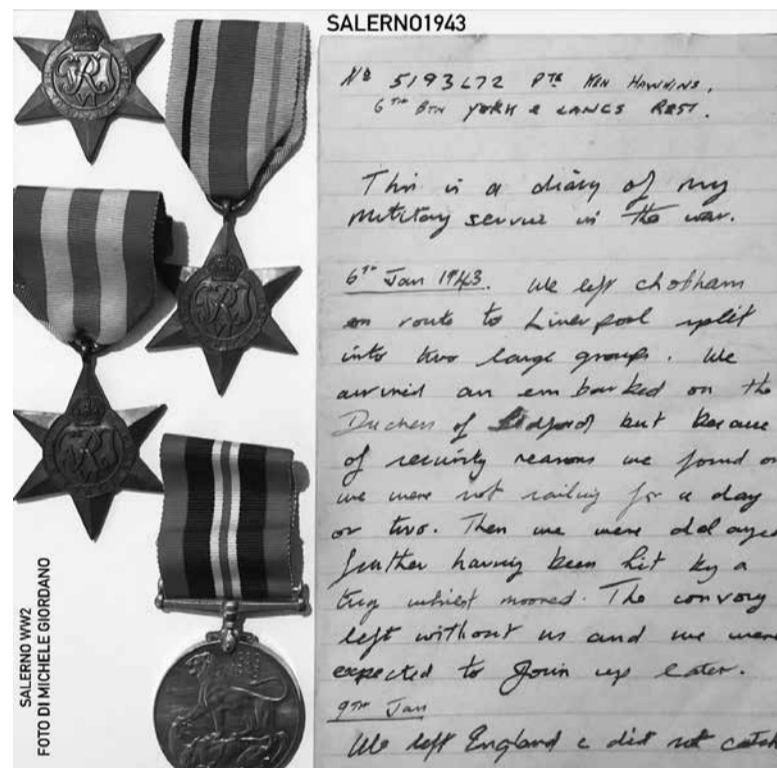 SALERNO1943
Nº 5193672 PTE KEN HAWKINS.
6TH BTN YORK & LANCS REGT.
This is a diary of my
military service in the war.
6TH Jan 1943. We left chatham
en route to Liverpool split
into two large groups. We
arrived an embarked on the
Duchess of Bedford but because
of security reasons we found o
we were not sailing for a day
or two. Then we were delayed
further having been hit by a
tug whilst moored. The convoy
left without us and we were
expected to join up later.
9TH Jan
We left England & did not catch
SALERNO WW2
FOTO DI MICHELE GIORDANO